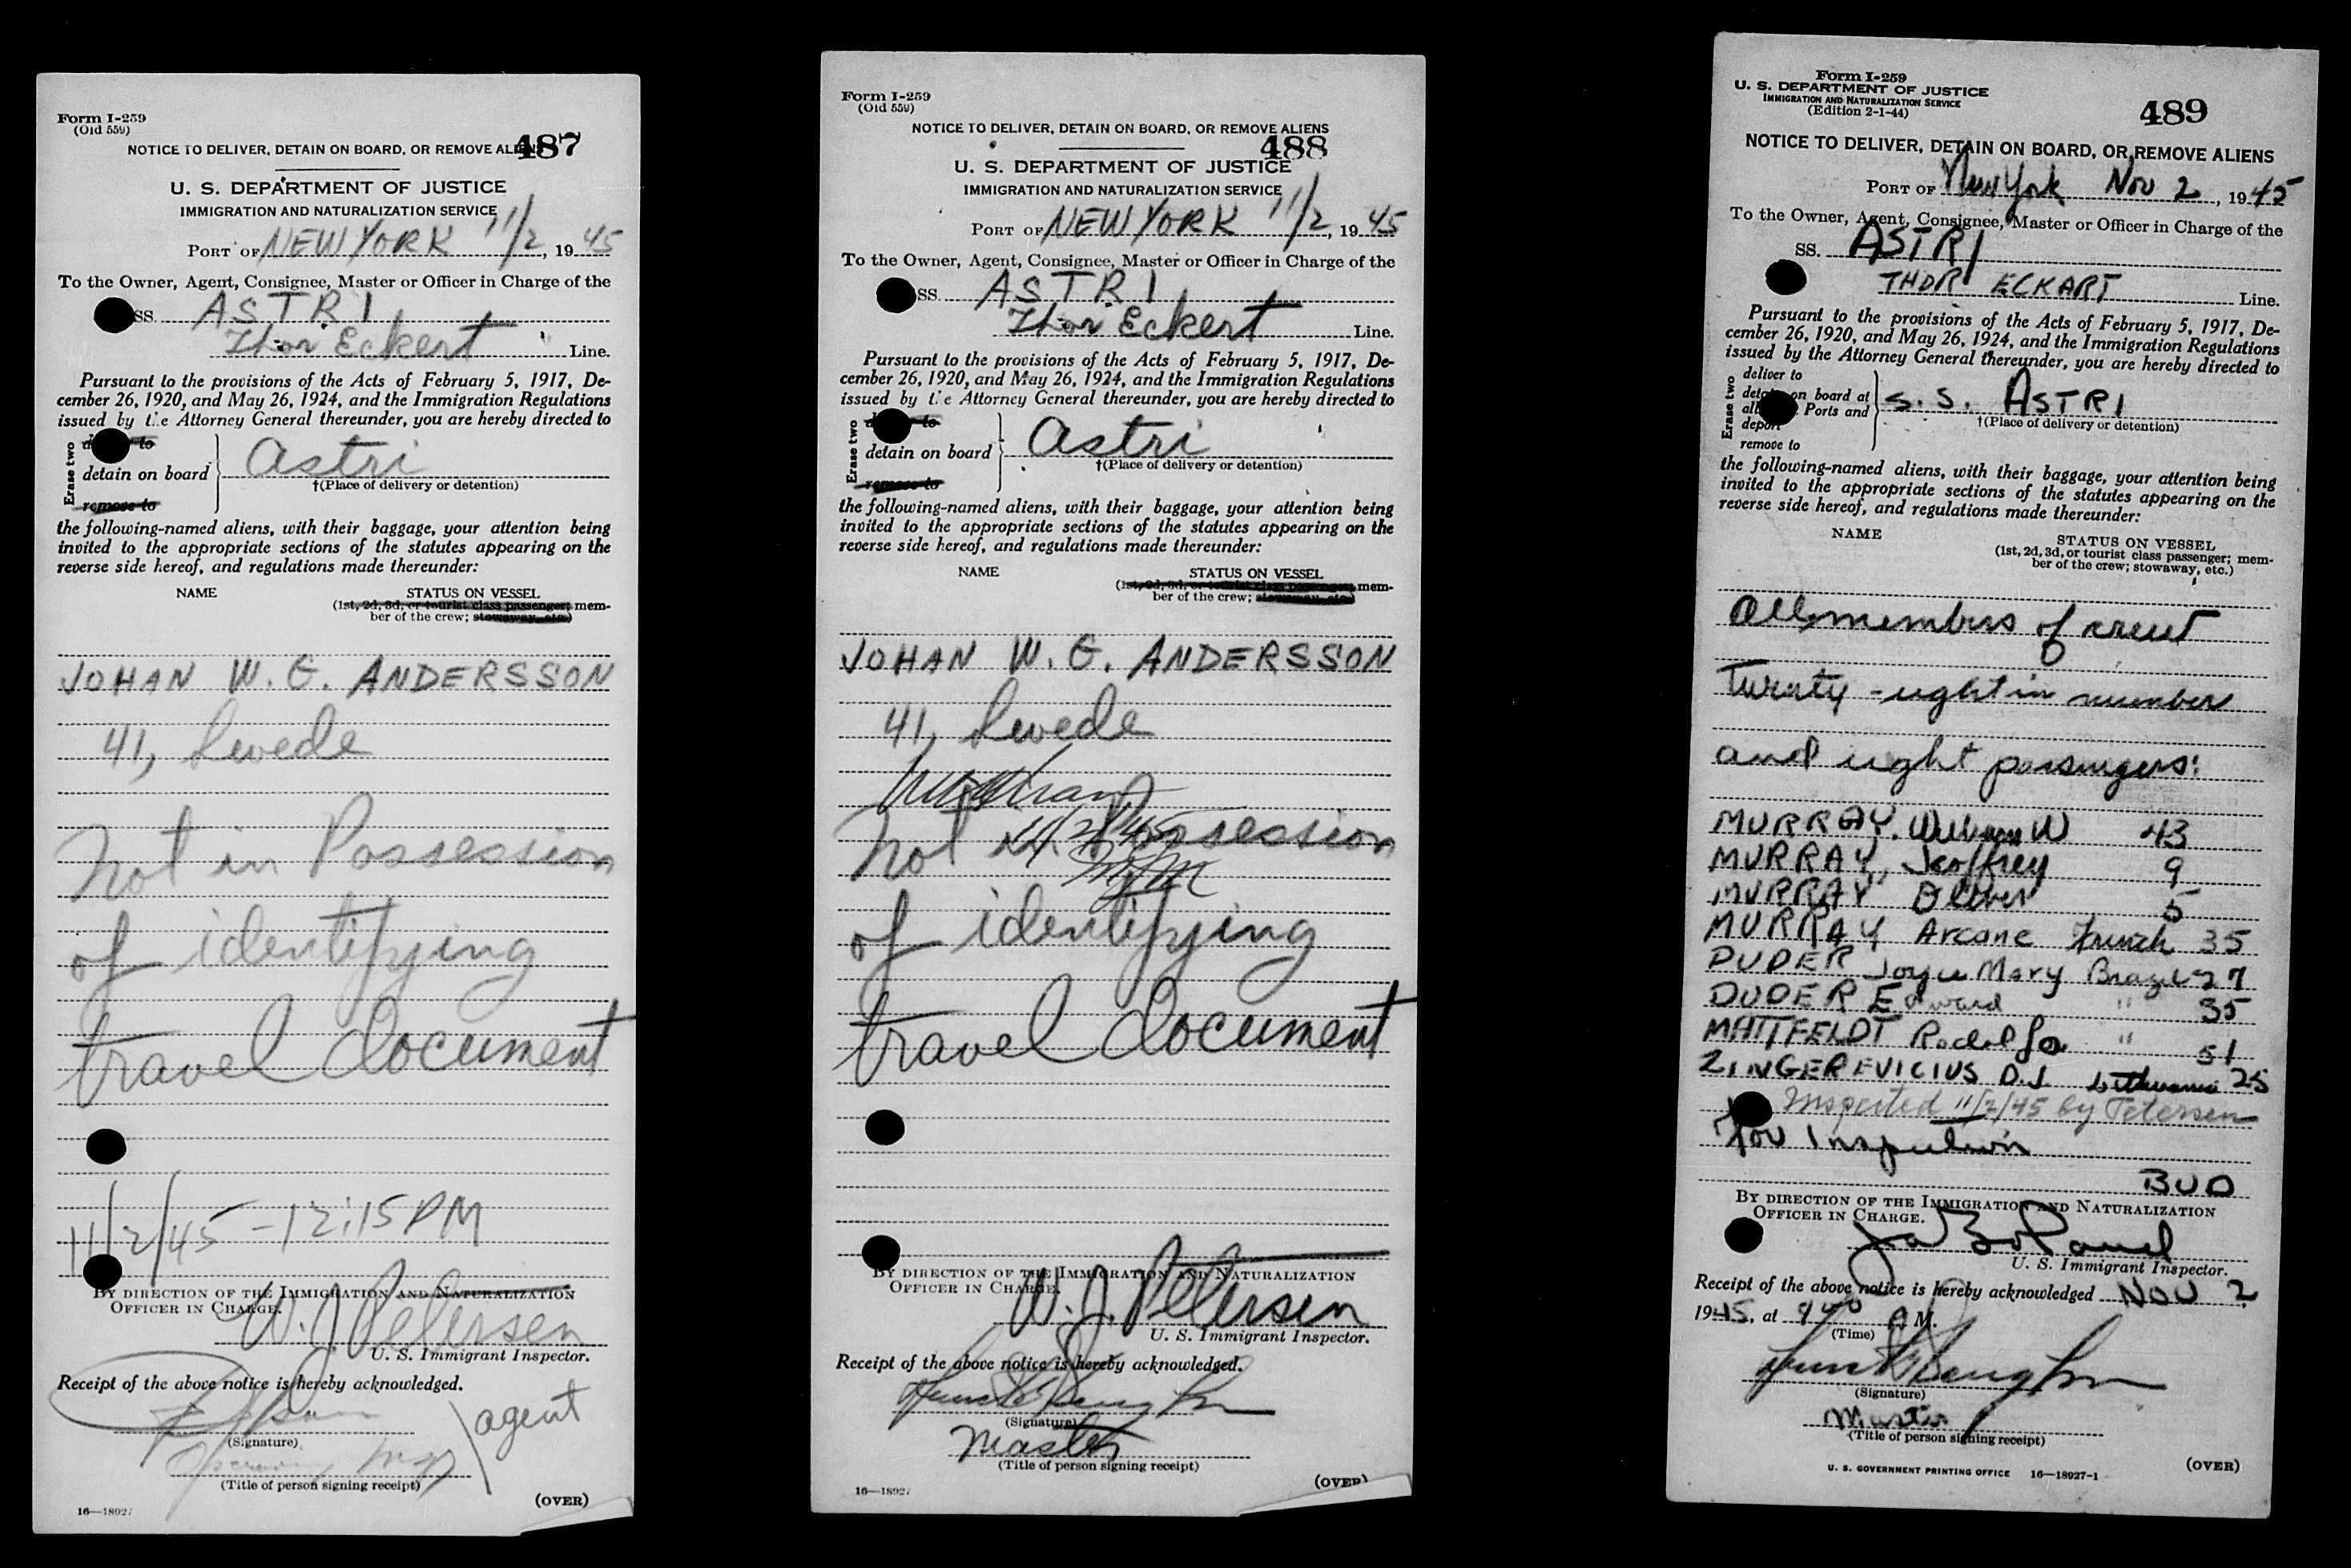 Form I-259
(Old 559)
487
NOTICE TO DELIVER, DETAIN ON BOARD, OR REMOVE ALIENS
U. S. DEPARTMENT OF JUSTICE
IMMIGRATION AND NATURALIZATION SERVICE
PORT OF NEW YORK 11/2, 1945
To the Owner, Agent, Consignee, Master or Officer in Charge of the
SS. ASTRI
Thor Eckert Line.
Pursuant to the provisions of the Acts of February 5, 1917, De-
cember 26, 1920, and May 26, 1924, and the Immigration Regulations
issued by the Attorney General thereunder, you are hereby directed to
Erase two
to
detain on board Astri
remove to
†(Place of delivery or detention)
the following-named aliens, with their baggage, your attention being
invited to the appropriate sections of the statutes appearing on the
reverse side hereof, and regulations made thereunder:
NAME STATUS ON VESSEL
(1st, 2d, 3d, or tourist class passenger; mem-
ber of the crew; stowaway, etc.)
JOHAN W. G. ANDERSSON
41, Swede
Not in Possession
of identifying
travel document
11/2/45 - 12:15 PM
BY DIRECTION OF THE IMMIGRATION AND NATURALIZATION
OFFICER IN CHARGE.
W. J. Petersen
U. S. Immigrant Inspector.
Receipt of the above notice is hereby acknowledged.
agent
(Signature)
(Title of person signing receipt)
(OVER)
16—18927
Form I-259
(Old 559)
NOTICE TO DELIVER, DETAIN ON BOARD, OR REMOVE ALIENS
488
U. S. DEPARTMENT OF JUSTICE
IMMIGRATION AND NATURALIZATION SERVICE
PORT OF NEW YORK 11/2, 1945
To the Owner, Agent, Consignee, Master or Officer in Charge of the
SS. ASTRI
Thor Eckert Line.
Pursuant to the provisions of the Acts of February 5, 1917, De-
cember 26, 1920, and May 26, 1924, and the Immigration Regulations
issued by the Attorney General thereunder, you are hereby directed to
Erase two
to
detain on board Astri
remove to
†(Place of delivery or detention)
the following-named aliens, with their baggage, your attention being
invited to the appropriate sections of the statutes appearing on the
reverse side hereof, and regulations made thereunder:
NAME STATUS ON VESSEL
(1st, 2d, 3d, or tourist class passenger; mem-
ber of the crew; stowaway, etc.)
JOHAN W. G. ANDERSSON
41, Swede
Not in Possession
11/2/45
of identifying
travel document
BY DIRECTION OF THE IMMIGRATION AND NATURALIZATION
OFFICER IN CHARGE.
W. J. Petersen
U. S. Immigrant Inspector.
Receipt of the above notice is hereby acknowledged.
(Signature)
Master
(Title of person signing receipt)
(OVER)
16—18927
Form I-259
U. S. DEPARTMENT OF JUSTICE
IMMIGRATION AND NATURALIZATION SERVICE
(Edition 2-1-44)
489
NOTICE TO DELIVER, DETAIN ON BOARD, OR REMOVE ALIENS
PORT OF New York Nov 2, 1945
To the Owner, Agent, Consignee, Master or Officer in Charge of the
SS. ASTRI
THOR ECKART Line.
Pursuant to the provisions of the Acts of February 5, 1917, De-
cember 26, 1920, and May 26, 1924, and the Immigration Regulations
issued by the Attorney General thereunder, you are hereby directed to
Erase two
deliver to
detain on board at
all Ports and
deport
remove to
S.S. ASTRI
†(Place of delivery or detention)
the following-named aliens, with their baggage, your attention being
invited to the appropriate sections of the statutes appearing on the
reverse side hereof, and regulations made thereunder:
NAME STATUS ON VESSEL
(1st, 2d, 3d, or tourist class passenger; mem-
ber of the crew; stowaway, etc.)
All members of crew
Twenty-eight in number
and eight passengers:
MURRAY, William W 43
MURRAY, Jeoffrey 9
MURRAY Oliver 5
MURRAY Arcane French 35
DUDER Joyce Mary Brazil 27
DUDER Edward " 35
MATTFELDT Rodolfo " 51
ZINGEREVICIUS D.J. Lithuania 25
Inspected 11/2/45 by Petersen
For Inspection
BUD
BY DIRECTION OF THE IMMIGRATION AND NATURALIZATION
OFFICER IN CHARGE.
U. S. Immigrant Inspector.
Receipt of the above notice is hereby acknowledged NOV 2
1945, at 9 40 A M.
(Time)
(Signature)
Master
(Title of person signing receipt)
U. S. GOVERNMENT PRINTING OFFICE 16—18927-1
(OVER)